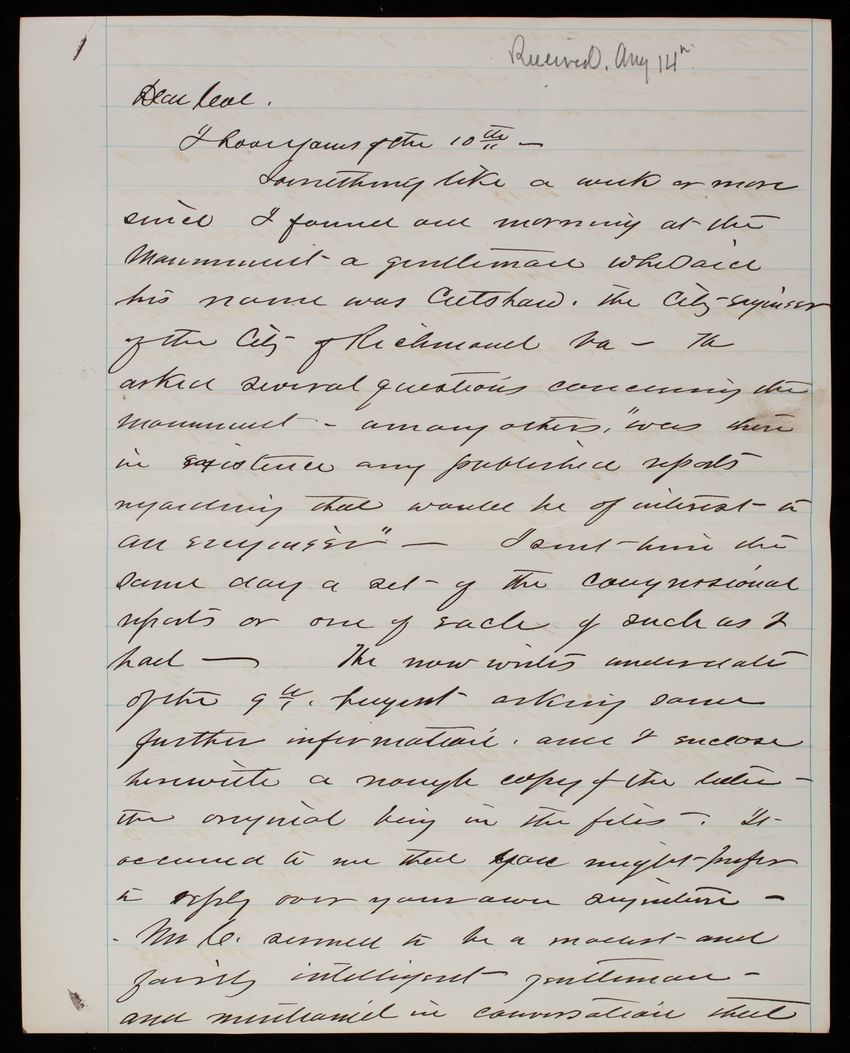 1
Received. Aug 14th
Dear Col.
I have yours of the 10th —
Something like a week or more
since I found one morning at the
Monument a gentleman who said
his name was Cutshaw. The City Engineer
of the City of Richmond Va — He
asked several questions concerning the
monument - among others, "was there
in existence any published reports
regarding that would be of interest to
an engineer" — I sent him the
same day a set of the congressional
reports or one of each of such as I
had — He now writes under date
of the 9th. August asking some
further information. and I enclose
herewith a rough copy of the letter —
the original being in the files —. It
occurred to me that you might prefer
to reply over your own signature —
Mr C. seemed to be a modest and
fairly intelligent gentleman —
and mentioned in conversation that